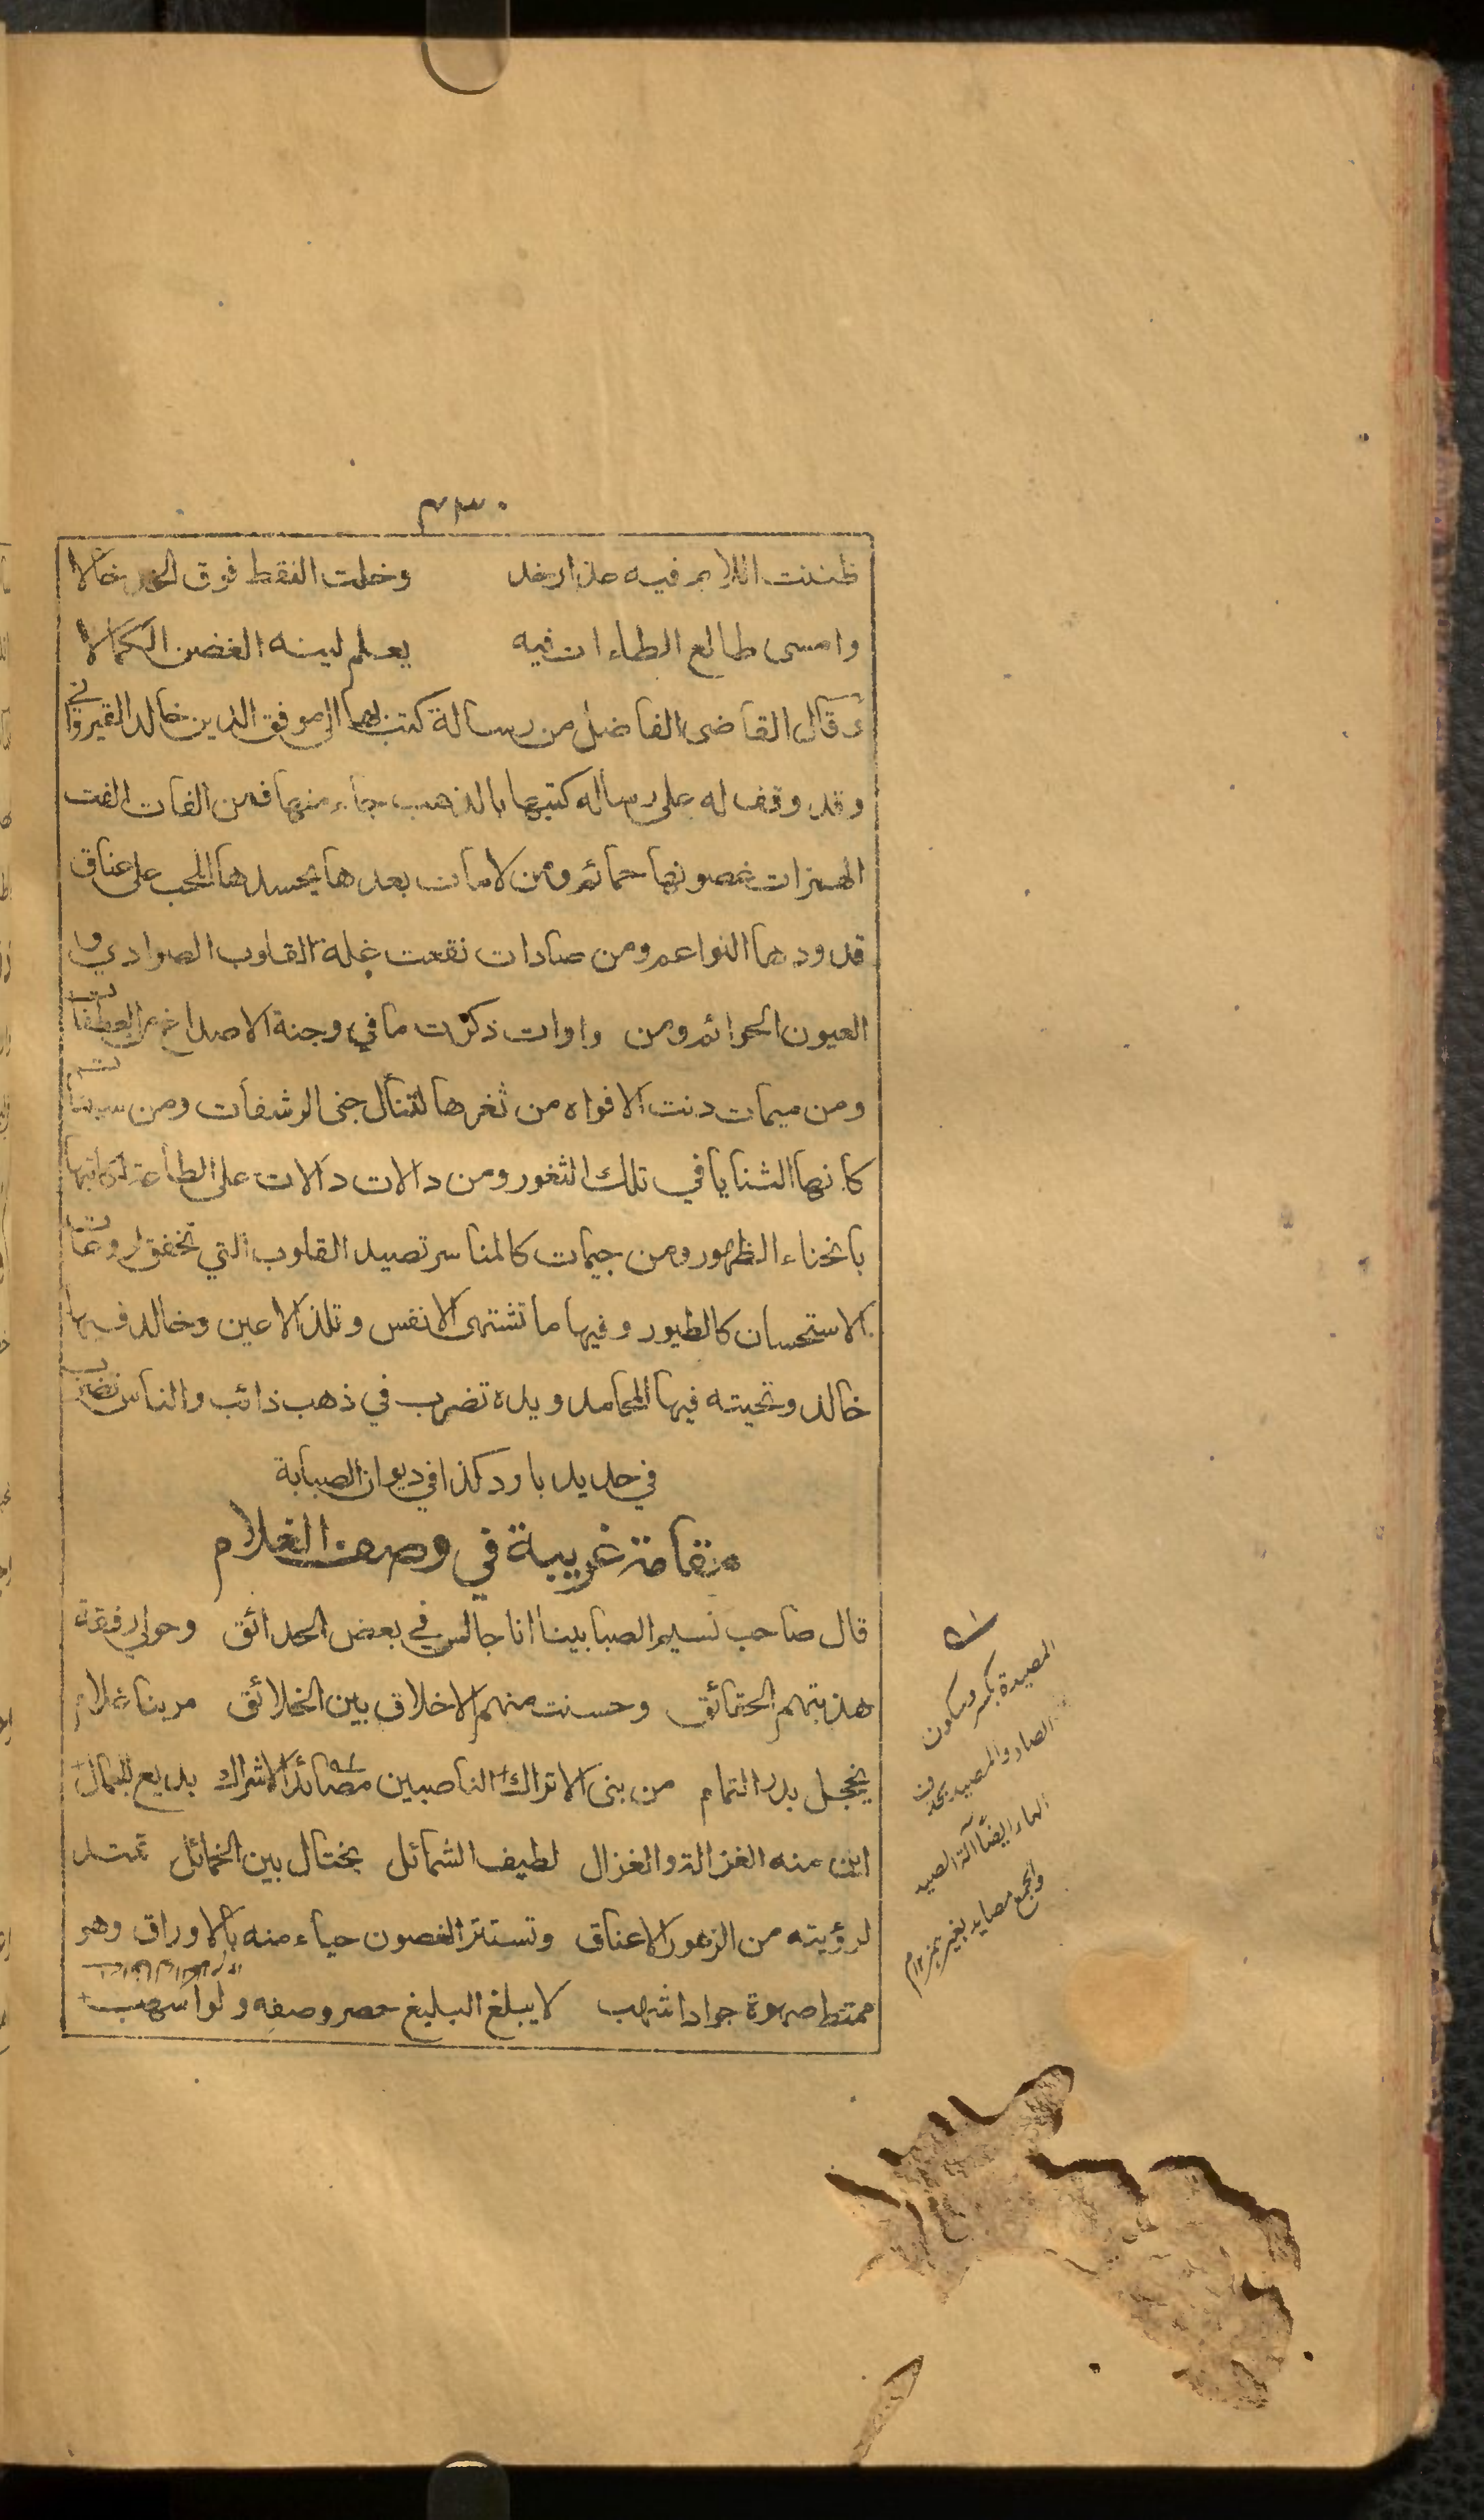 ٤٣٠
ظننت اللام فيه عذار خد وخلت النقط فوق الخد خالا
وامسى طالع الطاءات فيه يعلم لينه الغصن الكمالا
وقال القاضى الفاضل من رسالة كتب بها الى موفق الدين خالد القيروانى
وقد وقف له على رساله كتبها بالذهب جاء منها فمن الفات الفت
الهمزات غصونها حمائم ومن لامات بعدها يحسدها المحب على عناق
قدودها النواعم ومن صادات نقعت غلة القلوب الصوادي و
العيون الحوائم ومن واوات ذكرت ما في وجنة الاصداغ من العطفات
ومن ميمات دنت الافواه من ثغرها لتنال جنى الرشفات ومن سينات
كانها الثنايا في تلك الثغور ومن دالات دالات على الطاعة لكاتبها
بانحناء الظهور ومن جيمات كالمناسر تصيد القلوب التي تخفق لروعات
الاستحسان كالطيور وفيها ما تشتهى الانفس وتلذ الاعين وخالد فيها
خالد وتحيته فيها المحامد ويده تضرب في ذهب ذائب والناس تضرب
في حديد بارد كذا في ديوان الصبابة
مقامة غريبة في وصف الغلام
قال صاحب نسيم الصبا بينا انا جالس في بعض الحدائق وحولى رفقة
هذبتهم الحقائق وحسنت منهم الاخلاق بين الخلائق مر بنا غلام
يخجل بدر التمام من بنى الاتراك الناصبين مصائد الاشراك بديع الجمال
اين منه الغزالة والغزال لطيف الشمائل يختال بين الخمائل تمتد
لرؤيته من الزهور الاعناق وتستتر الغصون حياء منه بالاوراق وهو
ممتط صهوة جواد اشهب لا يبلغ البليغ حصر وصفه ولو اسهب
المصيدة بكسر وسكون
الصاد والمصيد بحذف
الهاء ايضًا آلة الصيد
والجمع مصايد بغير همز ١٢ م